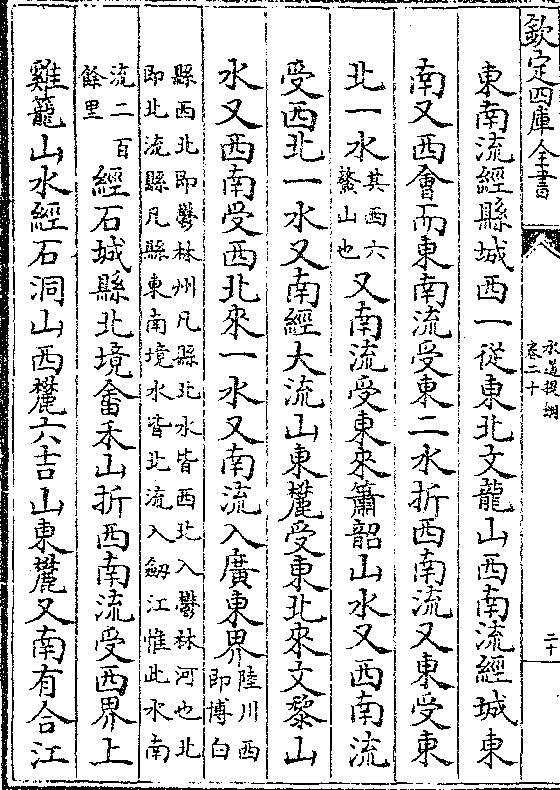 欽定四庫全書
水道提綱
卷二十
二十
東南流經縣城西一從東北文龍山西南流經城東
南又西會而東南流受東二水折西南流又東受東
北一水其西六鰲山也又南流受東來簫韶山水又西南流
受西北一水又南經大流山東麓受東北來文黎山
水又西南受西北來一水又南流入廣東界陸川西即博白
縣西北即鬱林州凡縣北水皆西北入鬱林河也北
即北流縣凡縣東南境水皆北流入劒江惟此水南
流二百餘里經石城縣北境畬禾山折西南流受西界上
雞籠山水經石洞山西麓六吉山東麓又南有合江